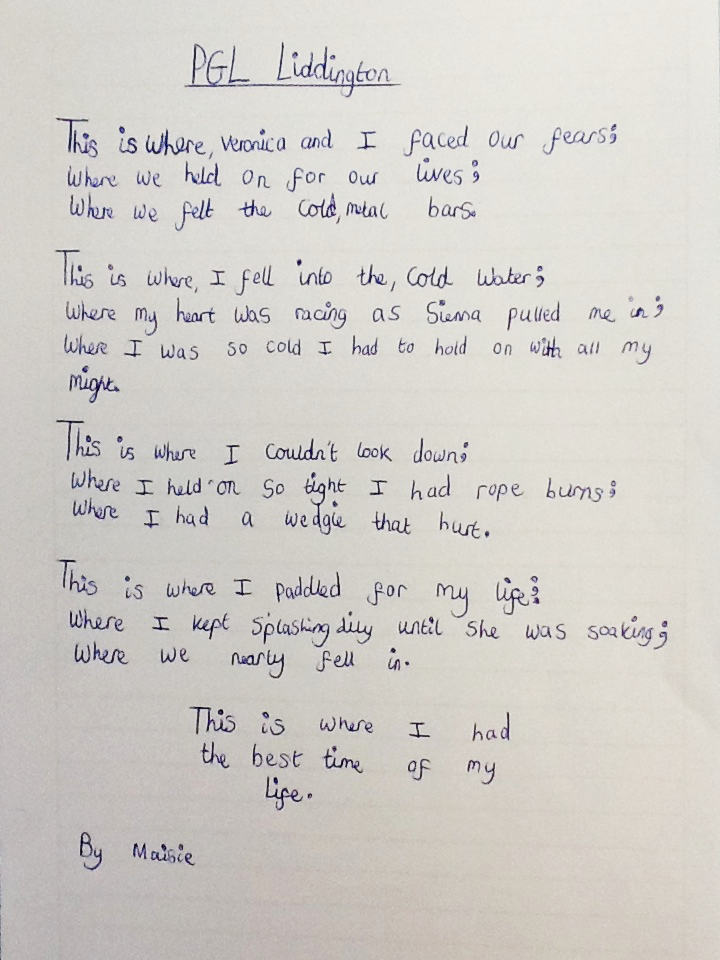 PGL Liddington
This is where, Veronica and I faced our fears;
Where we held on for our lives;
Where we felt the cold, metal bars.
This is where, I fell into the, cold water;
Where my heart was racing as Sienna pulled me in;
Where I was so cold I had to hold on with all my
might.
This is where I couldn't look down;
Where I held on so tight I had rope burns;
Where I had a wedgie that hurt.
This is where I paddled for my life;
Where I kept splashing until she was soaking;
Where we nearly fell in.
This is where I had
the best time of my
life.
By Maisie